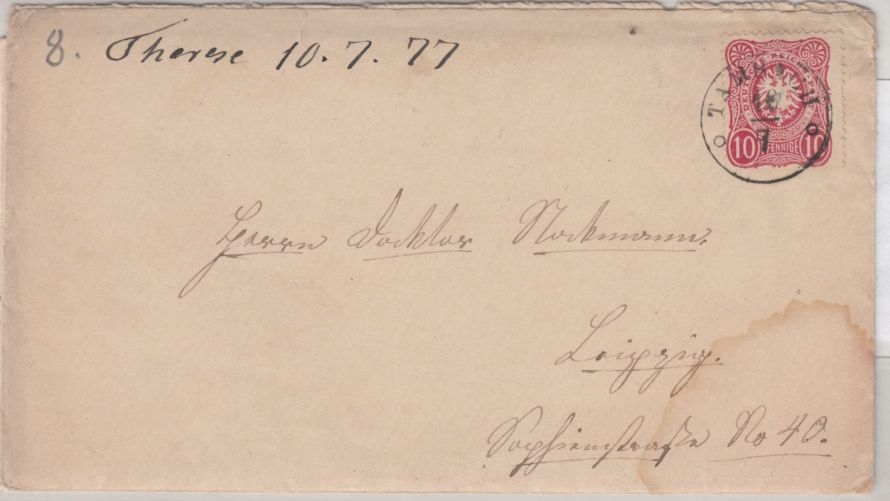 8. Therese 10.7.77
10 PFENNIGE 10
7
Herrn Docktor Stockmann.
Leipzig.
Sophienstraße No 40.